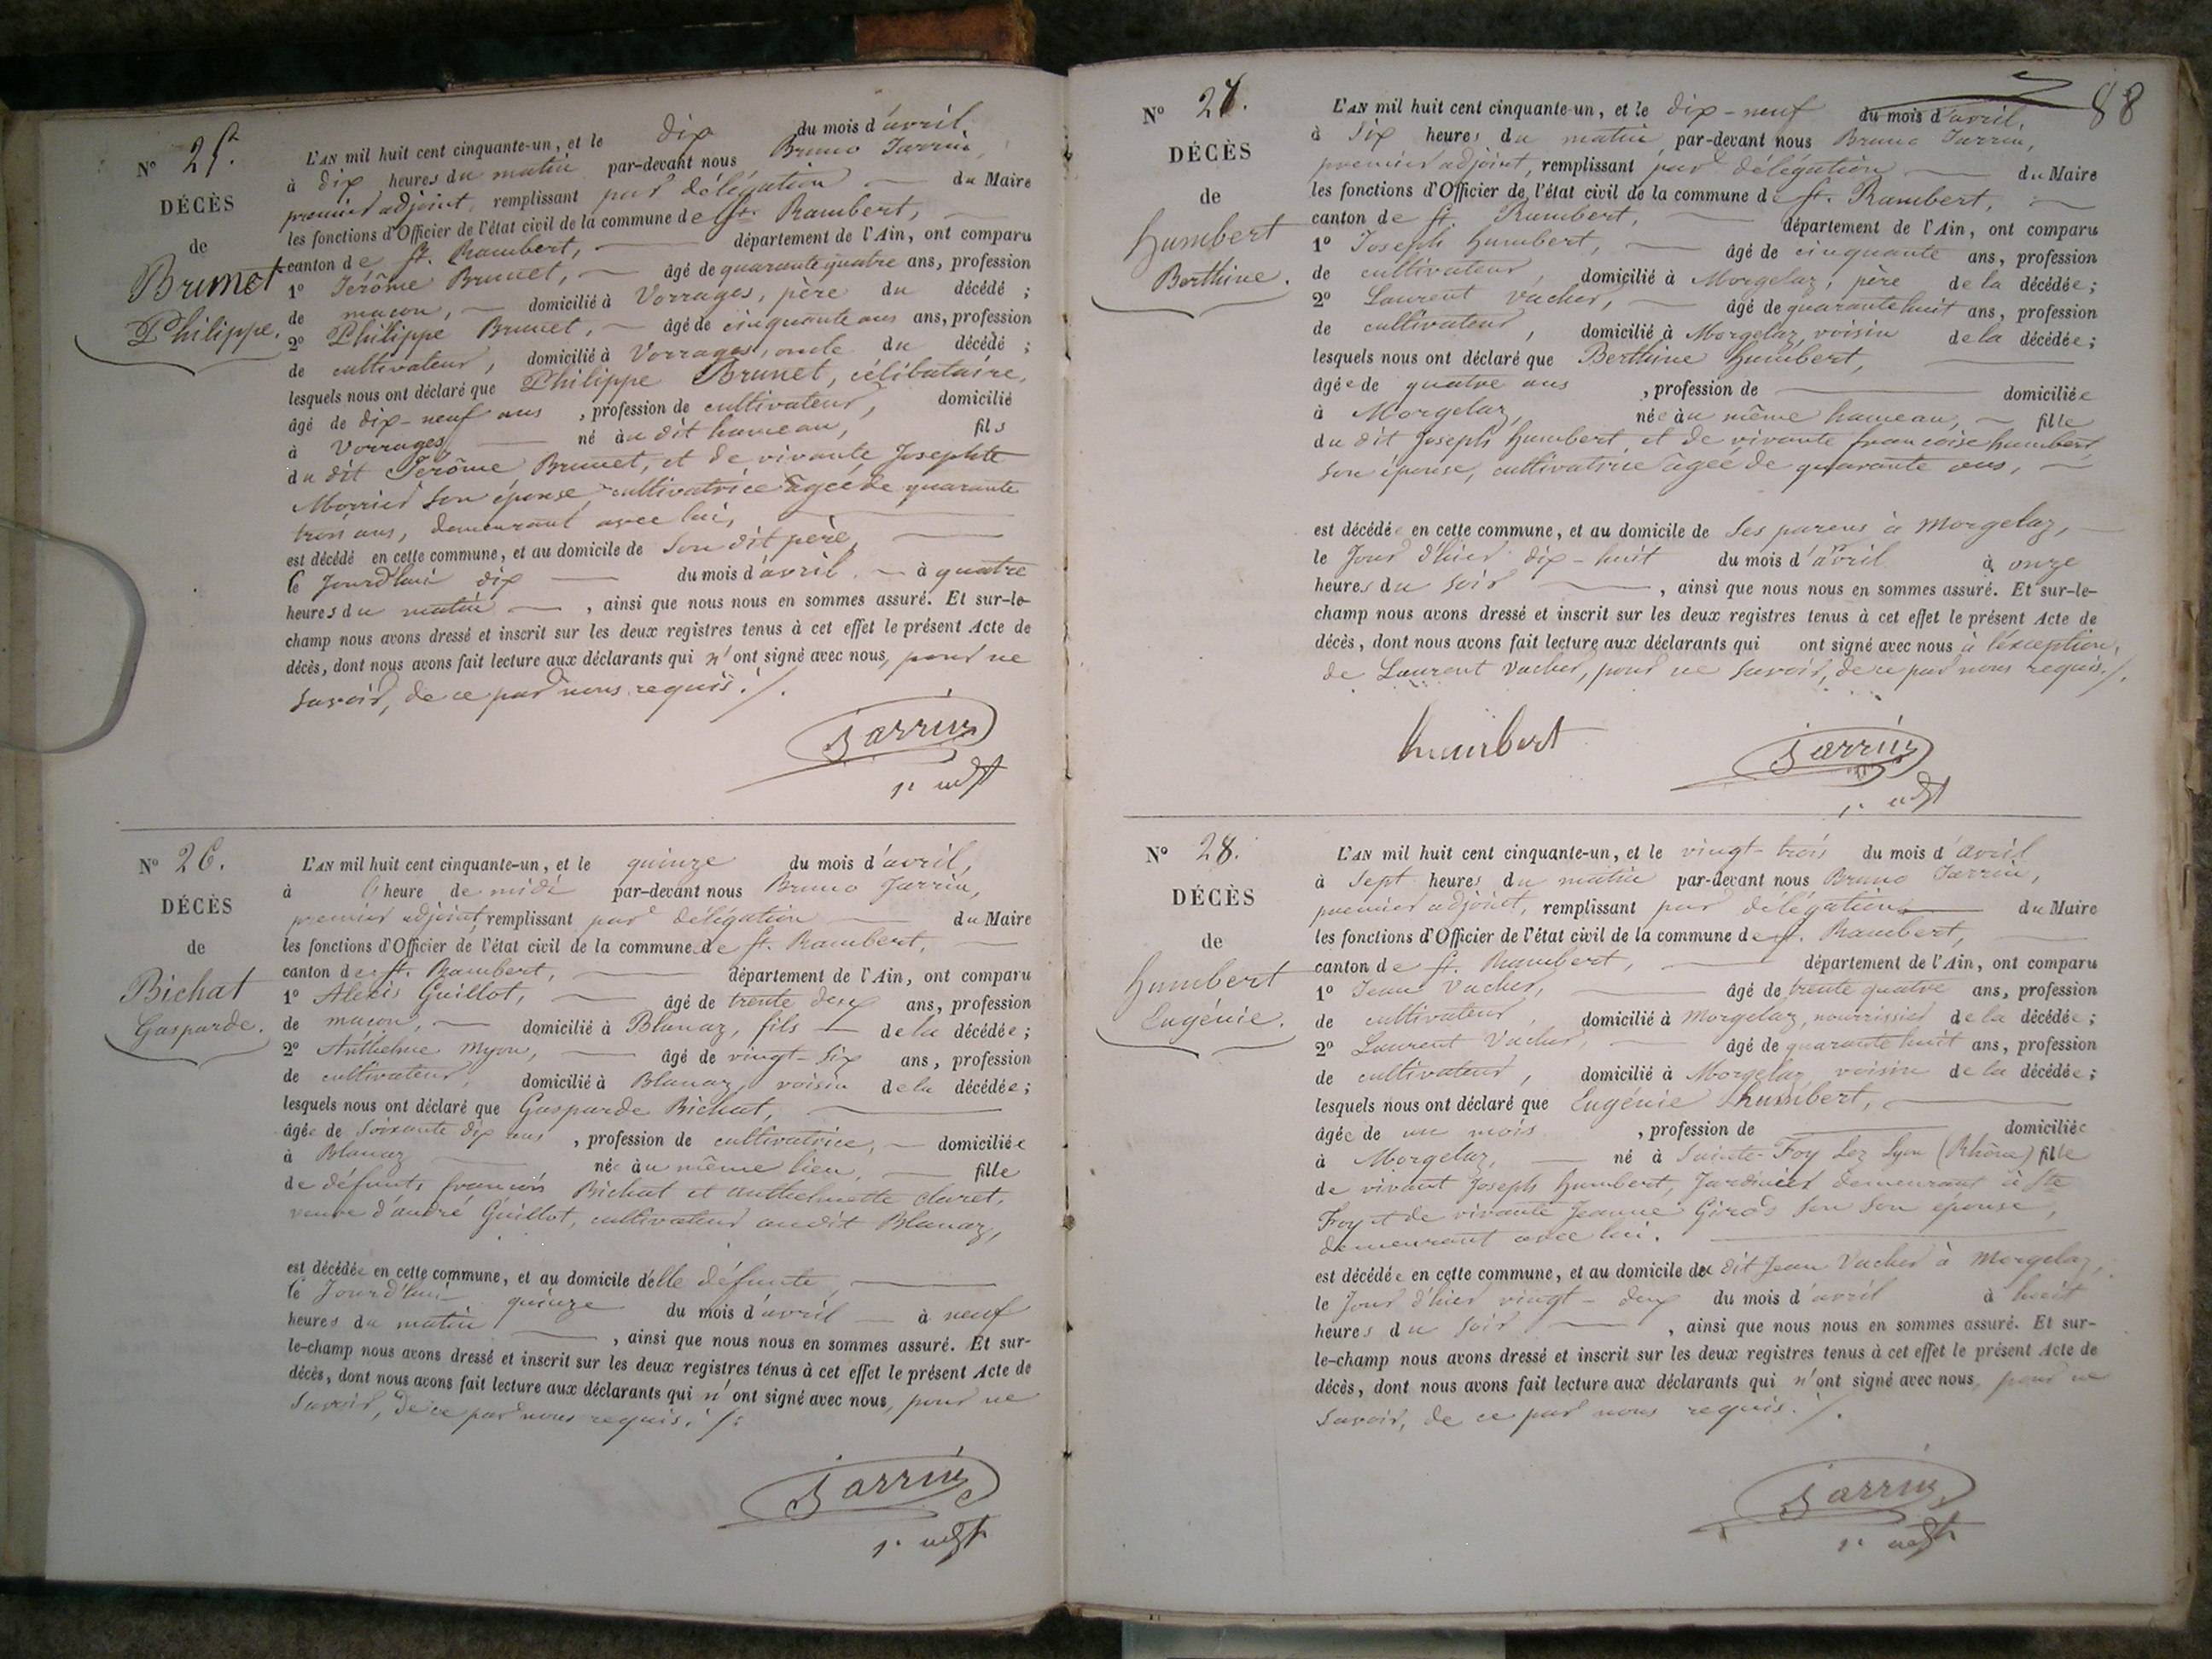 N° 25.
DÉCÈS
de
Brunet
Philippe.
L'AN mil huit cent cinquante-un, et le dix du mois d'avril,
à dix heures du matin par-devant nous Bruno Jarrin,
premier adjoint, remplissant par délégation du Maire
les fonctions d'Officier de l'état civil de la commune de St. Rambert,
canton de St. Rambert, département de l'Ain, ont comparu
1° Jérôme Brunet, âgé de quarante quatre ans, profession
de maçon, domicilié à Vorrages, père du décédé ;
2° Philippe Brunet, âgé de cinquante ans ans, profession
de cultivateur, domicilié à Vorrages, oncle du décédé ;
lesquels nous ont déclaré que Philippe Brunet, célibataire,
âgé de dix-neuf ans , profession de cultivateur, domicilié
à Vorrages, né au dit hameau, fils
du dit Jérôme Brunet, et de vivante Josephte
Morrier son épouse, cultivatrice âgée de quarante
trois ans, demeurant avec lui,
est décédé en cette commune, et au domicile de son dit père,
le jourd'hui dix du mois d'avril à quatre
heures du matin , ainsi que nous nous en sommes assuré. Et sur-le-
champ nous avons dressé et inscrit sur les deux registres tenus à cet effet le présent Acte de
décès, dont nous avons fait lecture aux déclarants qui n'ont signé avec nous, pour ne
savoir, de ce par nous requis ./.
Jarrin
1er adjt
N° 26.
DÉCÈS
de
Bichat
Gasparde.
L'AN mil huit cent cinquante-un, et le quinze du mois d'avril,
à l'heure de midi par-devant nous Bruno Jarrin,
premier adjoint, remplissant par délégation du Maire
les fonctions d'Officier de l'état civil de la commune de St. Rambert,
canton de St. Rambert, département de l'Ain, ont comparu
1° Alexis Guillot, âgé de trente deux ans, profession
de maçon, domicilié à Blanaz, fils de la décédée ;
2° Anthelme Myon, âgé de vingt-six ans, profession
de cultivateur, domicilié à Blanaz, voisin de la décédée ;
lesquels nous ont déclaré que Gasparde Bichat,
âgée de soixante dix ans , profession de cultivatrice, domiciliée
à Blanaz née au même lieu, fille
de défunts françois Bichat et anthelmette Claret,
veuve d'andré Guillot, cultivateur audit Blanaz,
est décédée en cette commune, et au domicile d'elle défunte,
le jourd'hui quinze du mois d'avril à neuf
heures du matin , ainsi que nous nous en sommes assuré. Et sur-
le-champ nous avons dressé et inscrit sur les deux registres tenus à cet effet le présent Acte de
décès, dont nous avons fait lecture aux déclarants qui n'ont signé avec nous, pour ne
savoir, de ce par nous requis ./.
Jarrin
1er adjt
88
N° 27.
DÉCÈS
de
humbert
Berthine.
L'AN mil huit cent cinquante-un, et le dix-neuf du mois d'avril,
à six heures du matin par-devant nous Bruno Jarrin,
premier adjoint, remplissant par délégation du Maire
les fonctions d'Officier de l'état civil de la commune de St. Rambert,
canton de St. Rambert, département de l'Ain, ont comparu
1° Joseph humbert, âgé de cinquante ans, profession
de cultivateur, domicilié à Morgelaz, père de la décédée ;
2° Laurent Vacher, âgé de quarante huit ans, profession
de cultivateur, domicilié à Morgelaz, voisin de la décédée ;
lesquels nous ont déclaré que Berthine humbert,
âgée de quatre ans , profession de domiciliée
à Morgelaz, née au même hameau, fille
du dit Joseph humbert et de vivante françoise humbert
son épouse, cultivatrice âgée de quarante ans,
est décédée en cette commune, et au domicile de ses parens à Morgelaz,
le jour d'hier dix-huit du mois d'avril à onze
heures du soir , ainsi que nous nous en sommes assuré. Et sur-le-
champ nous avons dressé et inscrit sur les deux registres tenus à cet effet le présent Acte de
décès, dont nous avons fait lecture aux déclarants qui ont signé avec nous à l'exception,
de Laurent Vacher, pour ne savoir, de ce par nous requis ./.
humbert
Jarrin
1er adjt
N° 28.
DÉCÈS
de
humbert
Eugénie.
L'AN mil huit cent cinquante-un, et le vingt-trois du mois d'avril
à sept heures du matin par-devant nous Bruno Jarrin,
premier adjoint, remplissant par délégation du Maire
les fonctions d'Officier de l'état civil de la commune de St. Rambert,
canton de St. Rambert, département de l'Ain, ont comparu
1° Jean Vacher, âgé de trente quatre ans, profession
de cultivateur, domicilié à Morgelaz, nourrissier de la décédée ;
2° Laurent Vacher, âgé de quarante huit ans, profession
de cultivateur, domicilié à Morgelaz, voisin de la décédée ;
lesquels nous ont déclaré que Eugénie humbert,
âgée de un mois , profession de domiciliée
à Morgelaz, né à Sainte-Foy Lez Lyon (Rhône) fille
de vivant Joseph humbert, Jardinier demeurant à Ste
Foy et de vivante Jeanne Giros son son épouse,
demeurant avec lui.
est décédée en cette commune, et au domicile du dit Jean Vacher à Morgelaz,
le jour d'hier vingt-deux du mois d'avril à huit
heures du soir , ainsi que nous nous en sommes assuré. Et sur-
le-champ nous avons dressé et inscrit sur les deux registres tenus à cet effet le présent Acte de
décès, dont nous avons fait lecture aux déclarants qui n'ont signé avec nous, pour ne
savoir, de ce par nous requis ./.
Jarrin
1er adjt